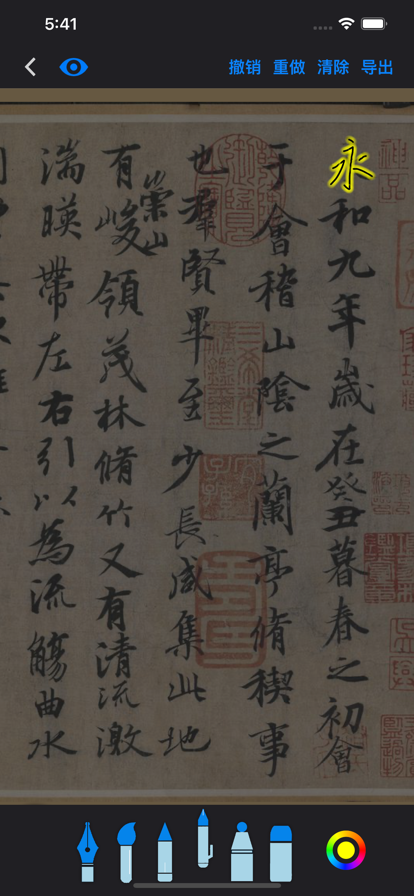 5:41
撤销 重做 清除 导出
永和九年歲在癸丑暮春之初會
于會稽山陰之蘭亭脩稧事
也羣賢畢至少長咸集此地
有崇山峻領茂林脩竹又有清流激
湍暎帶左右引以為流觴曲水